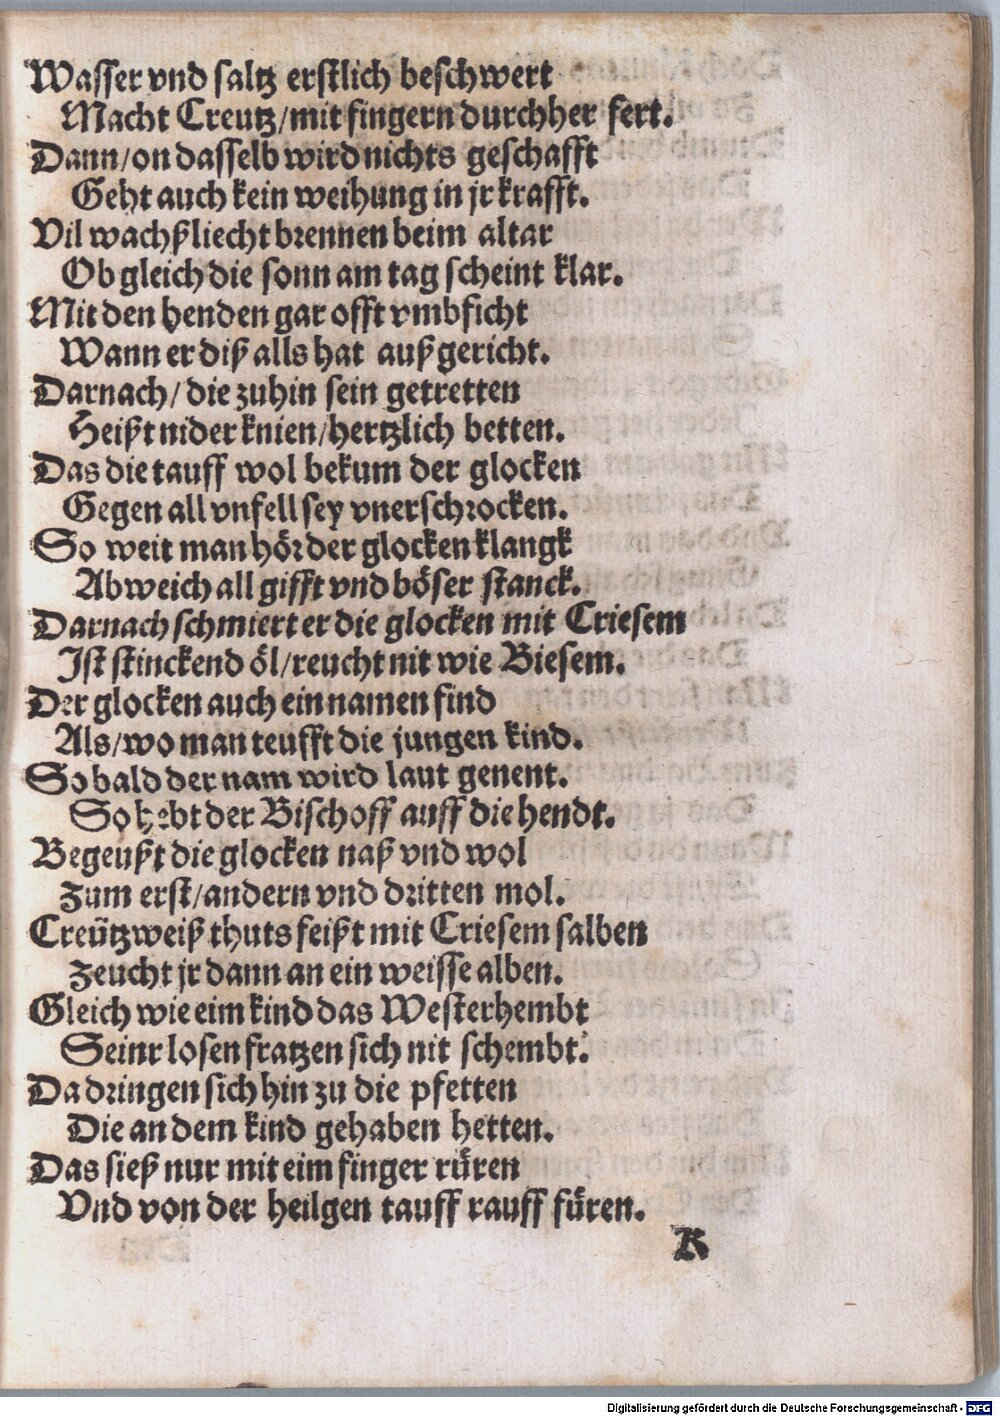 Wasser vnd saltz erstlich beschwert
Macht Creutz/mit fingern durchher fert.
Dann/on dasselb wird nichts geschafft
Geht auch kein weihung in jr krafft.
Vil wachßliecht brennen beim altar
Ob gleich die sonn am tag scheint klar.
Mit den henden gar offt vmbficht
Wann er diß alls hat außgericht.
Darnach/die zuhin sein getretten
Heißt nider knien/hertzlich betten.
Das die tauff wol bekum der glocken
Gegen all vnfell sey vnerschrocken.
So weit man hör der glocken klangk
Abweich all gifft vnd böser stanck.
Darnach schmiert er die glocken mit Criesem
Ist stinckend öl/reucht nit wie Biesem.
Der glocken auch ein namen find
Als/wo man teufft die jungen kind.
So bald der nam wird laut genent.
So hebt der Bischoff auff die hendt.
Begeußt die glocken naß vnd wol
Zum erst/andern vnd dritten mol.
Creützweiß thuts feißt mit Criesem salben
Zeucht jr dann an ein weisse alben.
Gleich wie eim kind das Westerhembt
Seinr losen fratzen sich nit schembt.
Da dringen sich hin zu die pfetten
Die an dem kind gehaben hetten.
Das sieß nur mit eim finger rüren
Vnd von der heilgen tauff rauff füren.
K
Digitalisierung gefördert durch die Deutsche Forschungsgemeinschaft - DFG